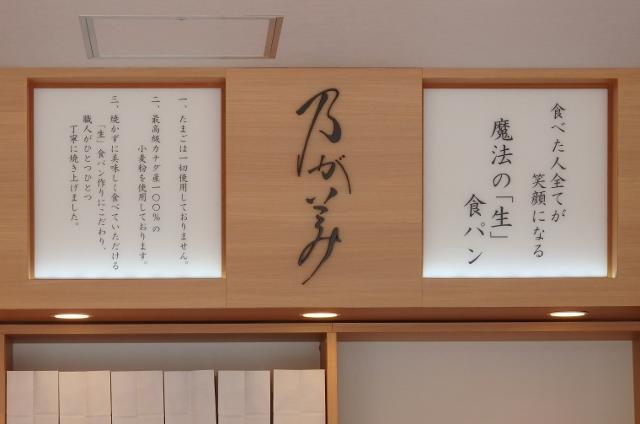 食べた人全てが
笑顔になる
魔法の「生」
食パン
乃が美
一、たまごは一切使用しておりません。
二、最高級カナダ産一〇〇%の
小麦粉を使用しております。
三、焼かずに美味しく食べていただける
「生」食パン作りにこだわり、
職人がひとつひとつ
丁寧に焼き上げました。